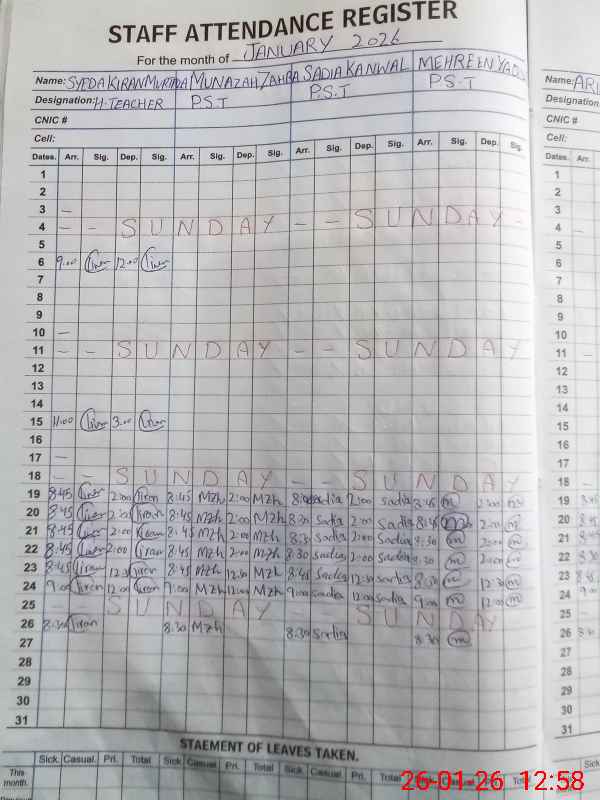 STAFF ATTENDANCE REGISTER
For the month of JANUARY 2026
Name: SYEDA KIRAN MURTAZA MUNAZAH ZAHRA SADIA KANWAL MEHREEN YAQU Name: ARI
Designation: H.TEACHER P.S.T P.S.T P.S.T Designation:
CNIC # CNIC #
Cell: Cell:
Dates. Arr. Sig. Dep. Sig. Arr. Sig. Dep. Sig. Arr. Sig. Dep. Sig. Arr. Sig. Dep. Sig. Dates. Arr.
1 1
2 2
3 – 3
4 – – SUNDAY – – SUNDAY – 4 –
5 5
6 9:00 Kiran 12:00 Kiran 6
7 7
8 8
9 9
10 – 10
11 – – SUNDAY – – SUNDAY 11 –
12 12
13 13
14 14
15 11:00 Kiran 3:00 Kiran 15
16 16
17 – 17
18 – – SUNDAY – – SUNDAY 18 –
19 8:45 Kiran 2:00 Kiran 8:45 MZh 2:00 MZh Sadia 2:00 Sadia 8:45 m m 19 8:45
20 8:45 Kiran 2:00 Kiran 8:45 MZh 2:00 MZh 8:30 Sadia 2:00 Sadia 8:45 m 2:00 m 20 8:45
21 8:45 Kiran 2:00 Kiran 8:45 MZh 2:00 MZh 8:30 Sadia 2:00 Sadia 8:30 m 2:00 m 21 8:45
22 8:45 Kiran 2:00 Kiran 8:45 MZh 2:00 MZh 8:30 Sadia 2:00 Sadia 8:30 m 2:00 m 22 8:30
23 8:45 Kiran 12:30 Kiran 8:45 MZh 12:30 MZh 8:45 Sadia 12:30 Sadia 8:30 m 12:30 m 23 8:45
24 9:00 Kiran 12:00 Kiran 9:00 MZh 12:00 MZh 9:00 Sadia 12:00 Sadia 9:00 m 12:00 m 24 9:00
25 – SUNDAY SUNDAY 25 –
26 8:30 Kiran 8:30 MZh 8:30 Sadia 8:30 m 26 8:30
27 27
28 28
29 29
30 30
31 31
STAEMENT OF LEAVES TAKEN.
Sick. Casual. Pri. Total Sick. Casual. Pri. Total Sick. Casual. Pri. Total Sick. Casual. Pri. Total Sick.
This month. This month.
26-01-26 12:58